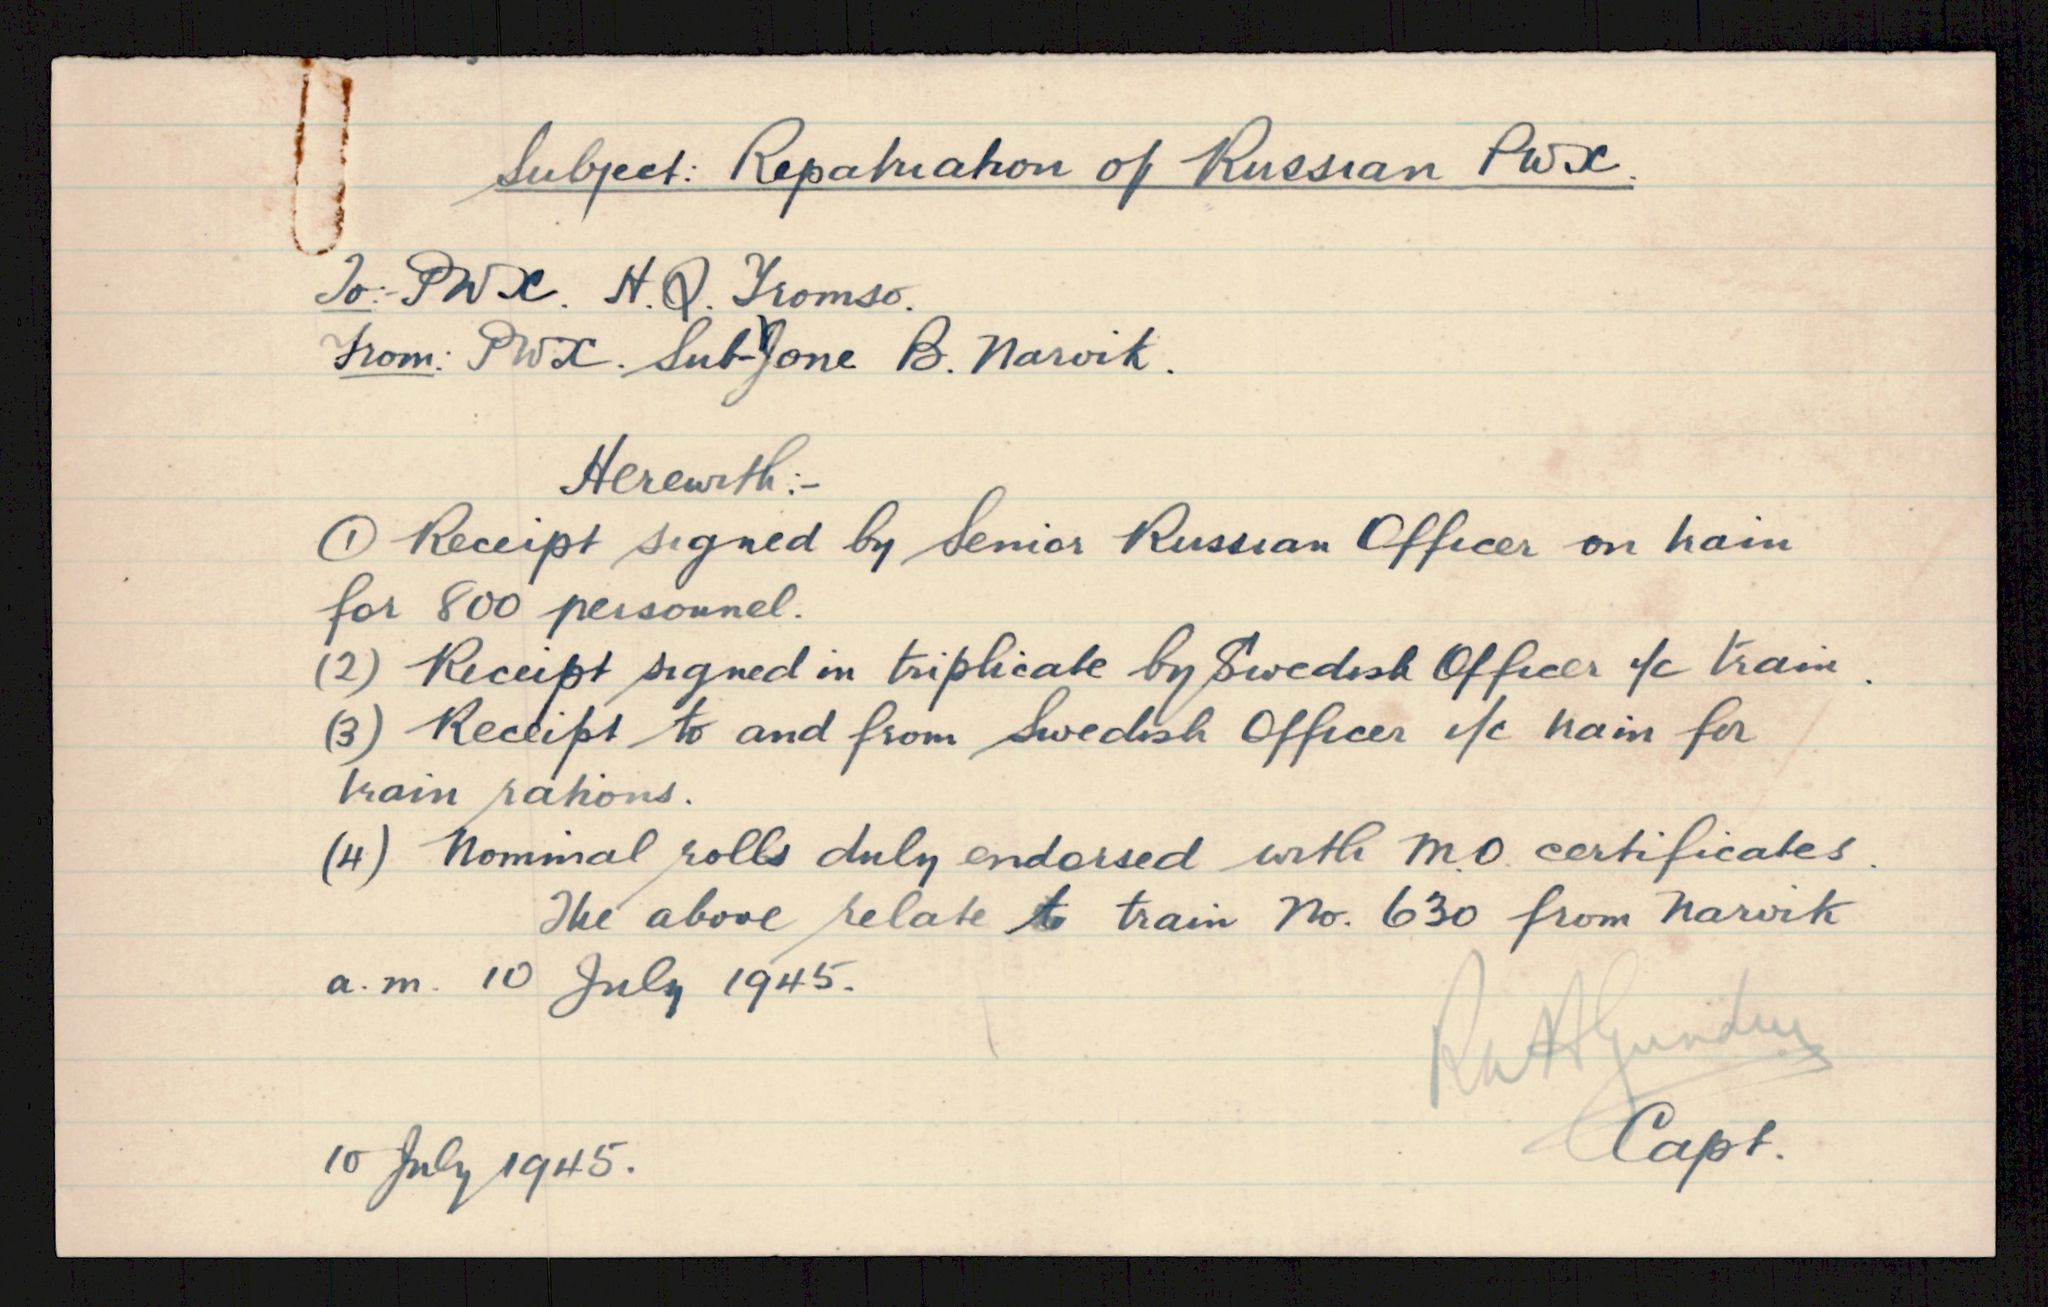 Subject: Repatriation of Russian PWX.
To:- PWX. H.Q. Tromso.
From: PWX. Sub-Zone B. Narvik.
Herewith:-
① Receipt signed by Senior Russian Officer on train
for 800 personnel.
(2) Receipt signed in triplicate by Swedish Officer i/c train.
(3) Receipt to and from Swedish Officer i/c train for
train rations.
(4) Nominal rolls duly endorsed with M.O. certificates.
The above relate to train No. 630 from Narvik
a.m. 10 July 1945.
Capt.
10 July 1945.